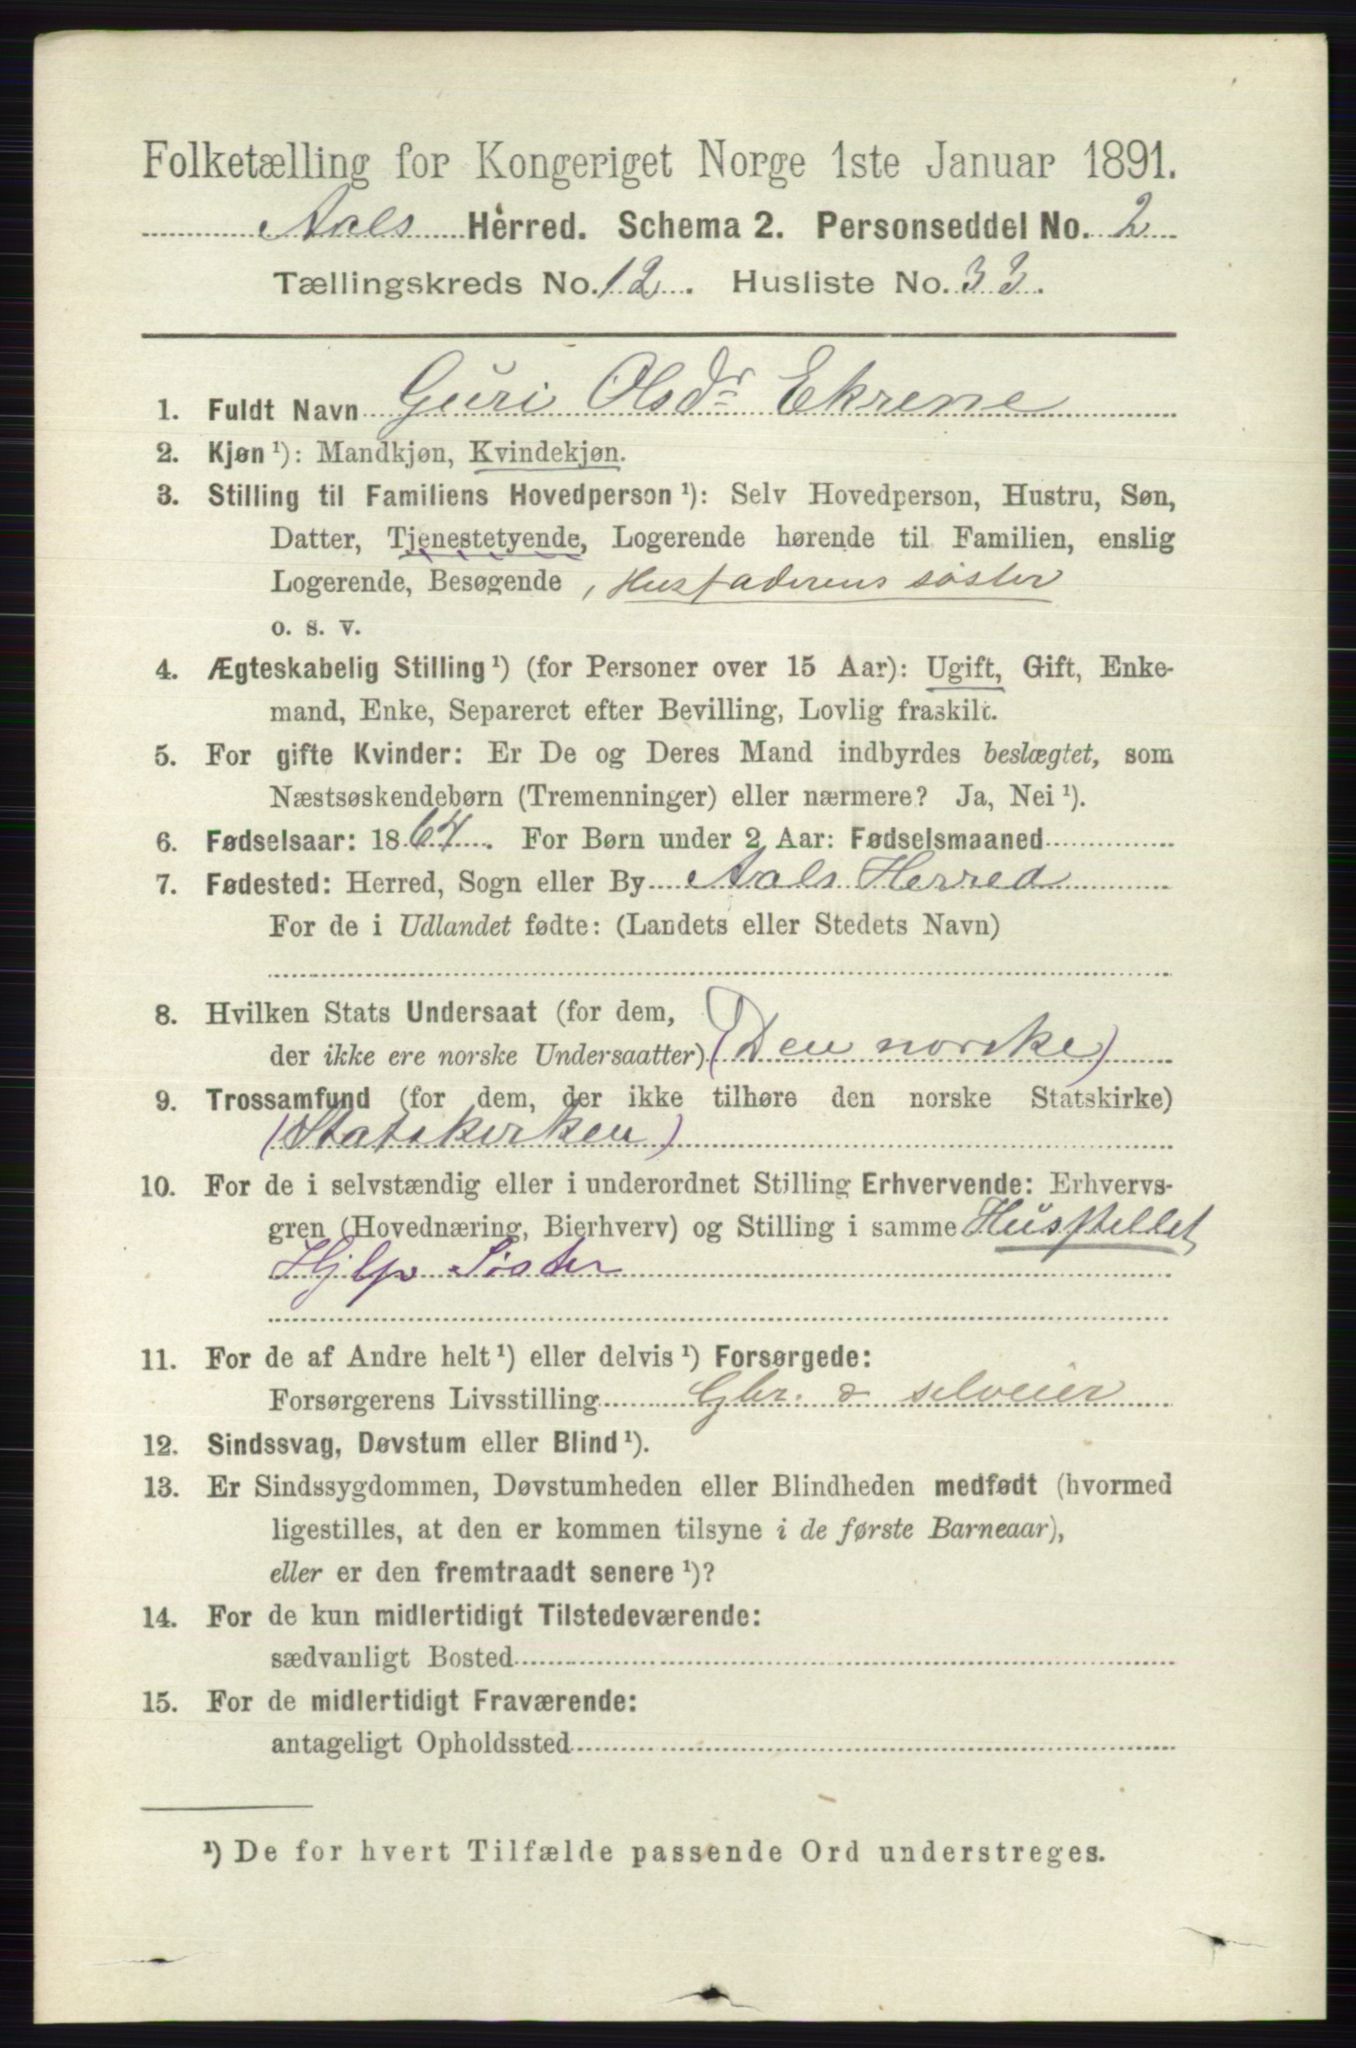 Folketælling for Kongeriget Norge 1ste Januar 1891.
Aals Herred. Schema 2. Personseddel No. 2
Tællingskreds No. 12. Husliste No. 33.
1. Fuldt Navn Guri Olsdr Ekrene
2. Kjøn ¹): Mandkjøn, Kvindekjøn.
3. Stilling til Familiens Hovedperson ¹): Selv Hovedperson, Hustru, Søn,
Datter, Tjenestetyende, Logerende hørende til Familien, enslig
Logerende, Besøgende, Husfaderens søster
o. s. v.
4. Ægteskabelig Stilling ¹) (for Personer over 15 Aar): Ugift, Gift, Enke-
mand, Enke, Separeret efter Bevilling, Lovlig fraskilt.
5. For gifte Kvinder: Er De og Deres Mand indbyrdes beslægtet, som
Næstsøskendebørn (Tremenninger) eller nærmere? Ja, Nei ¹).
6. Fødselsaar: 1864. For Børn under 2 Aar: Fødselsmaaned
7. Fødested: Herred, Sogn eller By Aals Herred
For de i Udlandet fødte: (Landets eller Stedets Navn)
8. Hvilken Stats Undersaat (for dem,
der ikke ere norske Undersaatter) (Den norske)
9. Trossamfund (for dem, der ikke tilhøre den norske Statskirke)
(Statskirken)
10. For de i selvstændig eller i underordnet Stilling Erhvervende: Erhvervs-
gren (Hovednæring, Bierhverv) og Stilling i samme Husstellet
Hjlp Sister
11. For de af Andre helt ¹) eller delvis ¹) Forsørgede:
Forsørgerens Livsstilling Gbr. & selveier
12. Sindssvag, Døvstum eller Blind ¹).
13. Er Sindssygdommen, Døvstumheden eller Blindheden medfødt (hvormed
ligestilles, at den er kommen tilsyne i de første Barneaar),
eller er den fremtraadt senere ¹)?
14. For de kun midlertidigt Tilstedeværende:
sædvanligt Bosted
15. For de midlertidigt Fraværende:
antageligt Opholdssted
¹) De for hvert Tilfælde passende Ord understreges.